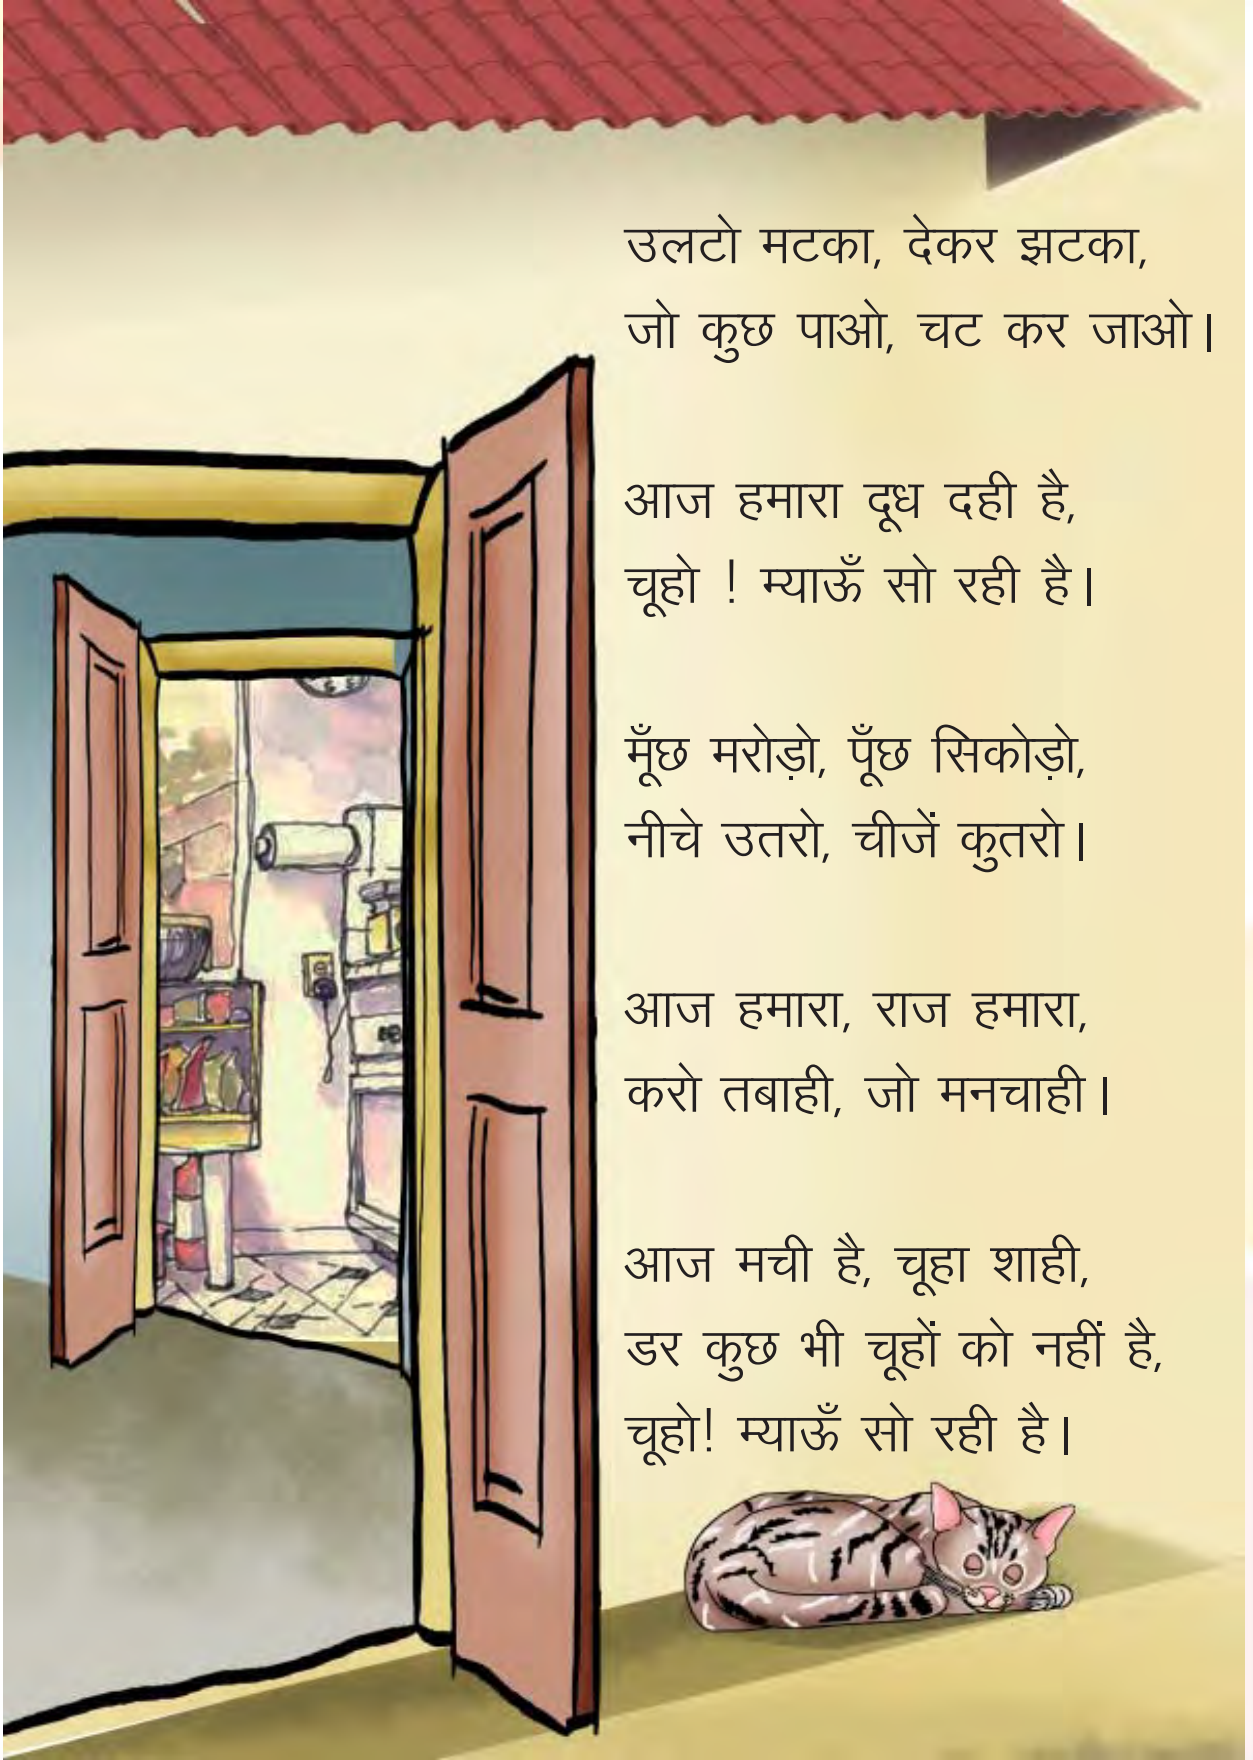 उलटो मटका, देकर झटका,
जो कुछ पाओ, चट कर जाओ।
आज हमारा दूध दही है,
चूहो ! म्याऊँ सो रही है।
मूँछ मरोड़ो, पूँछ सिकोड़ो,
नीचे उतरो, चीजें कुतरो।
आज हमारा, राज हमारा,
करो तबाही, जो मनचाही।
आज मची है, चूहा शाही,
डर कुछ भी चूहों को नहीं है,
चूहो! म्याऊँ सो रही है।